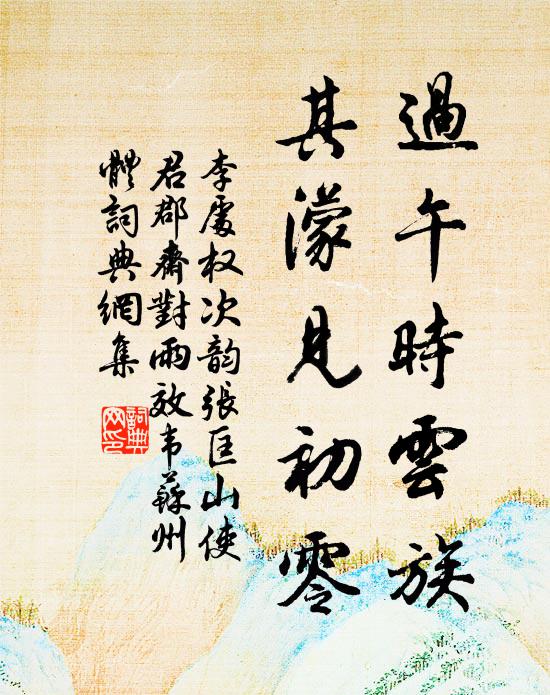 過午時雲族
其濛見初零
李處权次韵張匡山使
君郡齋對雨效韦蘇州
體詞典網集
詞典
网印